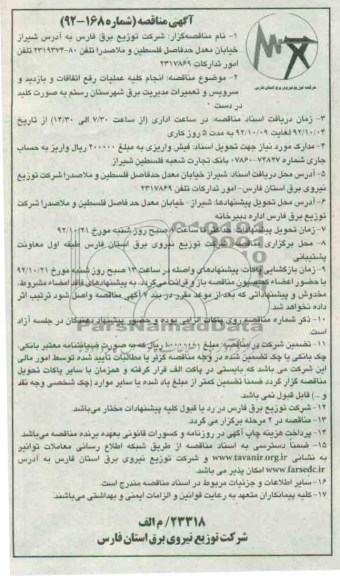 آگهی مناقصه (شماره ۱۶۸-۹۲)
۱- نام مناقصه‌گزار: شرکت توزیع برق فارس به آدرس شیراز
خیابان معدل حدفاصل فلسطین و ملاصدرا تلفن ۸۰-۲۳۱۹۳۷۳
امور تدارکات ۲۳۱۷۸۶۹
۲- موضوع مناقصه: انجام کلیه عملیات رفع اتفاقات و بازدید و
سرویس و تعمیرات مدیریت برق شهرستان رستم به صورت کلید
در دست
شرکت توزیع نیروی برق استان فارس
۳- زمان دریافت اسناد مناقصه: در ساعت اداری (از ساعت ۷/۳۰ الی ۱۴/۳۰) از تاریخ
۹۲/۱۰/۰۴ لغایت ۹۲/۱۰/۰۹ به مدت ۵ روز کاری
۴- مدارک مورد نیاز جهت تحویل اسناد: فیش واریزی به مبلغ ۲۰۰۰۰۰ ریال واریز به حساب
جاری شماره ۷۳۸۲۷-۰۷۸۶۰ بانک تجارت شعبه فلسطین شیراز
۵- آدرس محل دریافت اسناد: شیراز خیابان معدل حدفاصل فلسطین و ملاصدرا شرکت توزیع
نیروی برق استان فارس- امور تدارکات تلفن ۲۳۱۷۸۶۹
۶- آدرس محل تحویل پیشنهادها: شیراز- خیابان معدل حد فاصل فلسطین و ملاصدرا شرکت
توزیع برق فارس اداره دبیرخانه
۷- زمان تحویل پیشنهادات: حداکثر تا ساعت ۸ صبح روز شنبه مورخ ۹۲/۱۰/۲۱
۸- محل برگزاری مناقصه: شرکت توزیع نیروی برق استان فارس طبقه اول معاونت
پشتیبانی
۹- زمان بازگشایی پاکات: پیشنهادهای واصله در ساعت ۱۳ صبح روز شنبه مورخ ۹۲/۱۰/۲۱
با حضور اعضاء کمیسیون مناقصه باز و قرائت می‌گردد. به پیشنهادهای فاقد امضاء مشروط،
مخدوش و پیشنهاداتی که بعد از موعد مقرر در بند ۷ آگهی مناقصه واصل شود ترتیب اثر
داده نخواهد شد.
۱۰- ذکر شماره مناقصه روی پاکات الزامی بوده و حضور پیشنهاددهندگان در جلسه آزاد
است.
۱۱- تضمین شرکت در مناقصه: مبلغ ریال که به صورت ضمانتنامه معتبر بانکی،
چک بانکی یا چک تضمین شده در وجه مناقصه گزار یا مطالبات تأیید شده توسط امور مالی
این شرکت می باشد که بایستی در پاکت الف قرار گرفته و همزمان با سایر پاکات تحویل
مناقصه گزار گردد ضمنا تضمین کمتر از مبلغ یاد شده یا سایر موارد (چک شخصی وجه نقد
و ...) قابل قبول نمی باشد.
۱۲- شرکت توزیع برق فارس در رد یا قبول کلیه پیشنهادات مختار می‌باشد.
۱۳- مناقصه در ۲ مرحله برگزار می گردد.
۱۴- پرداخت هزینه چاپ آگهی در روزنامه و کسورات قانونی بعهده برنده مناقصه می‌باشد.
۱۵- ضمنا دسترسی به اسناد مناقصه از طریق شبکه اطلاع رسانی معاملات توانیر
به نشانی www.tavanir.org.ir و شرکت توزیع نیروی برق استان فارس به آدرس
www.farsedc.ir امکان پذیر می باشد.
۱۶- سایر اطلاعات و جزئیات مربوط در اسناد مناقصه مندرج است.
۱۷- کلیه پیمانکاران متعهد به رعایت قوانین و الزامات ایمنی و بهداشتی می‌باشند.
۲۳۳۱۸/ م الف
شرکت توزیع نیروی برق استان فارس
ParsNamadData